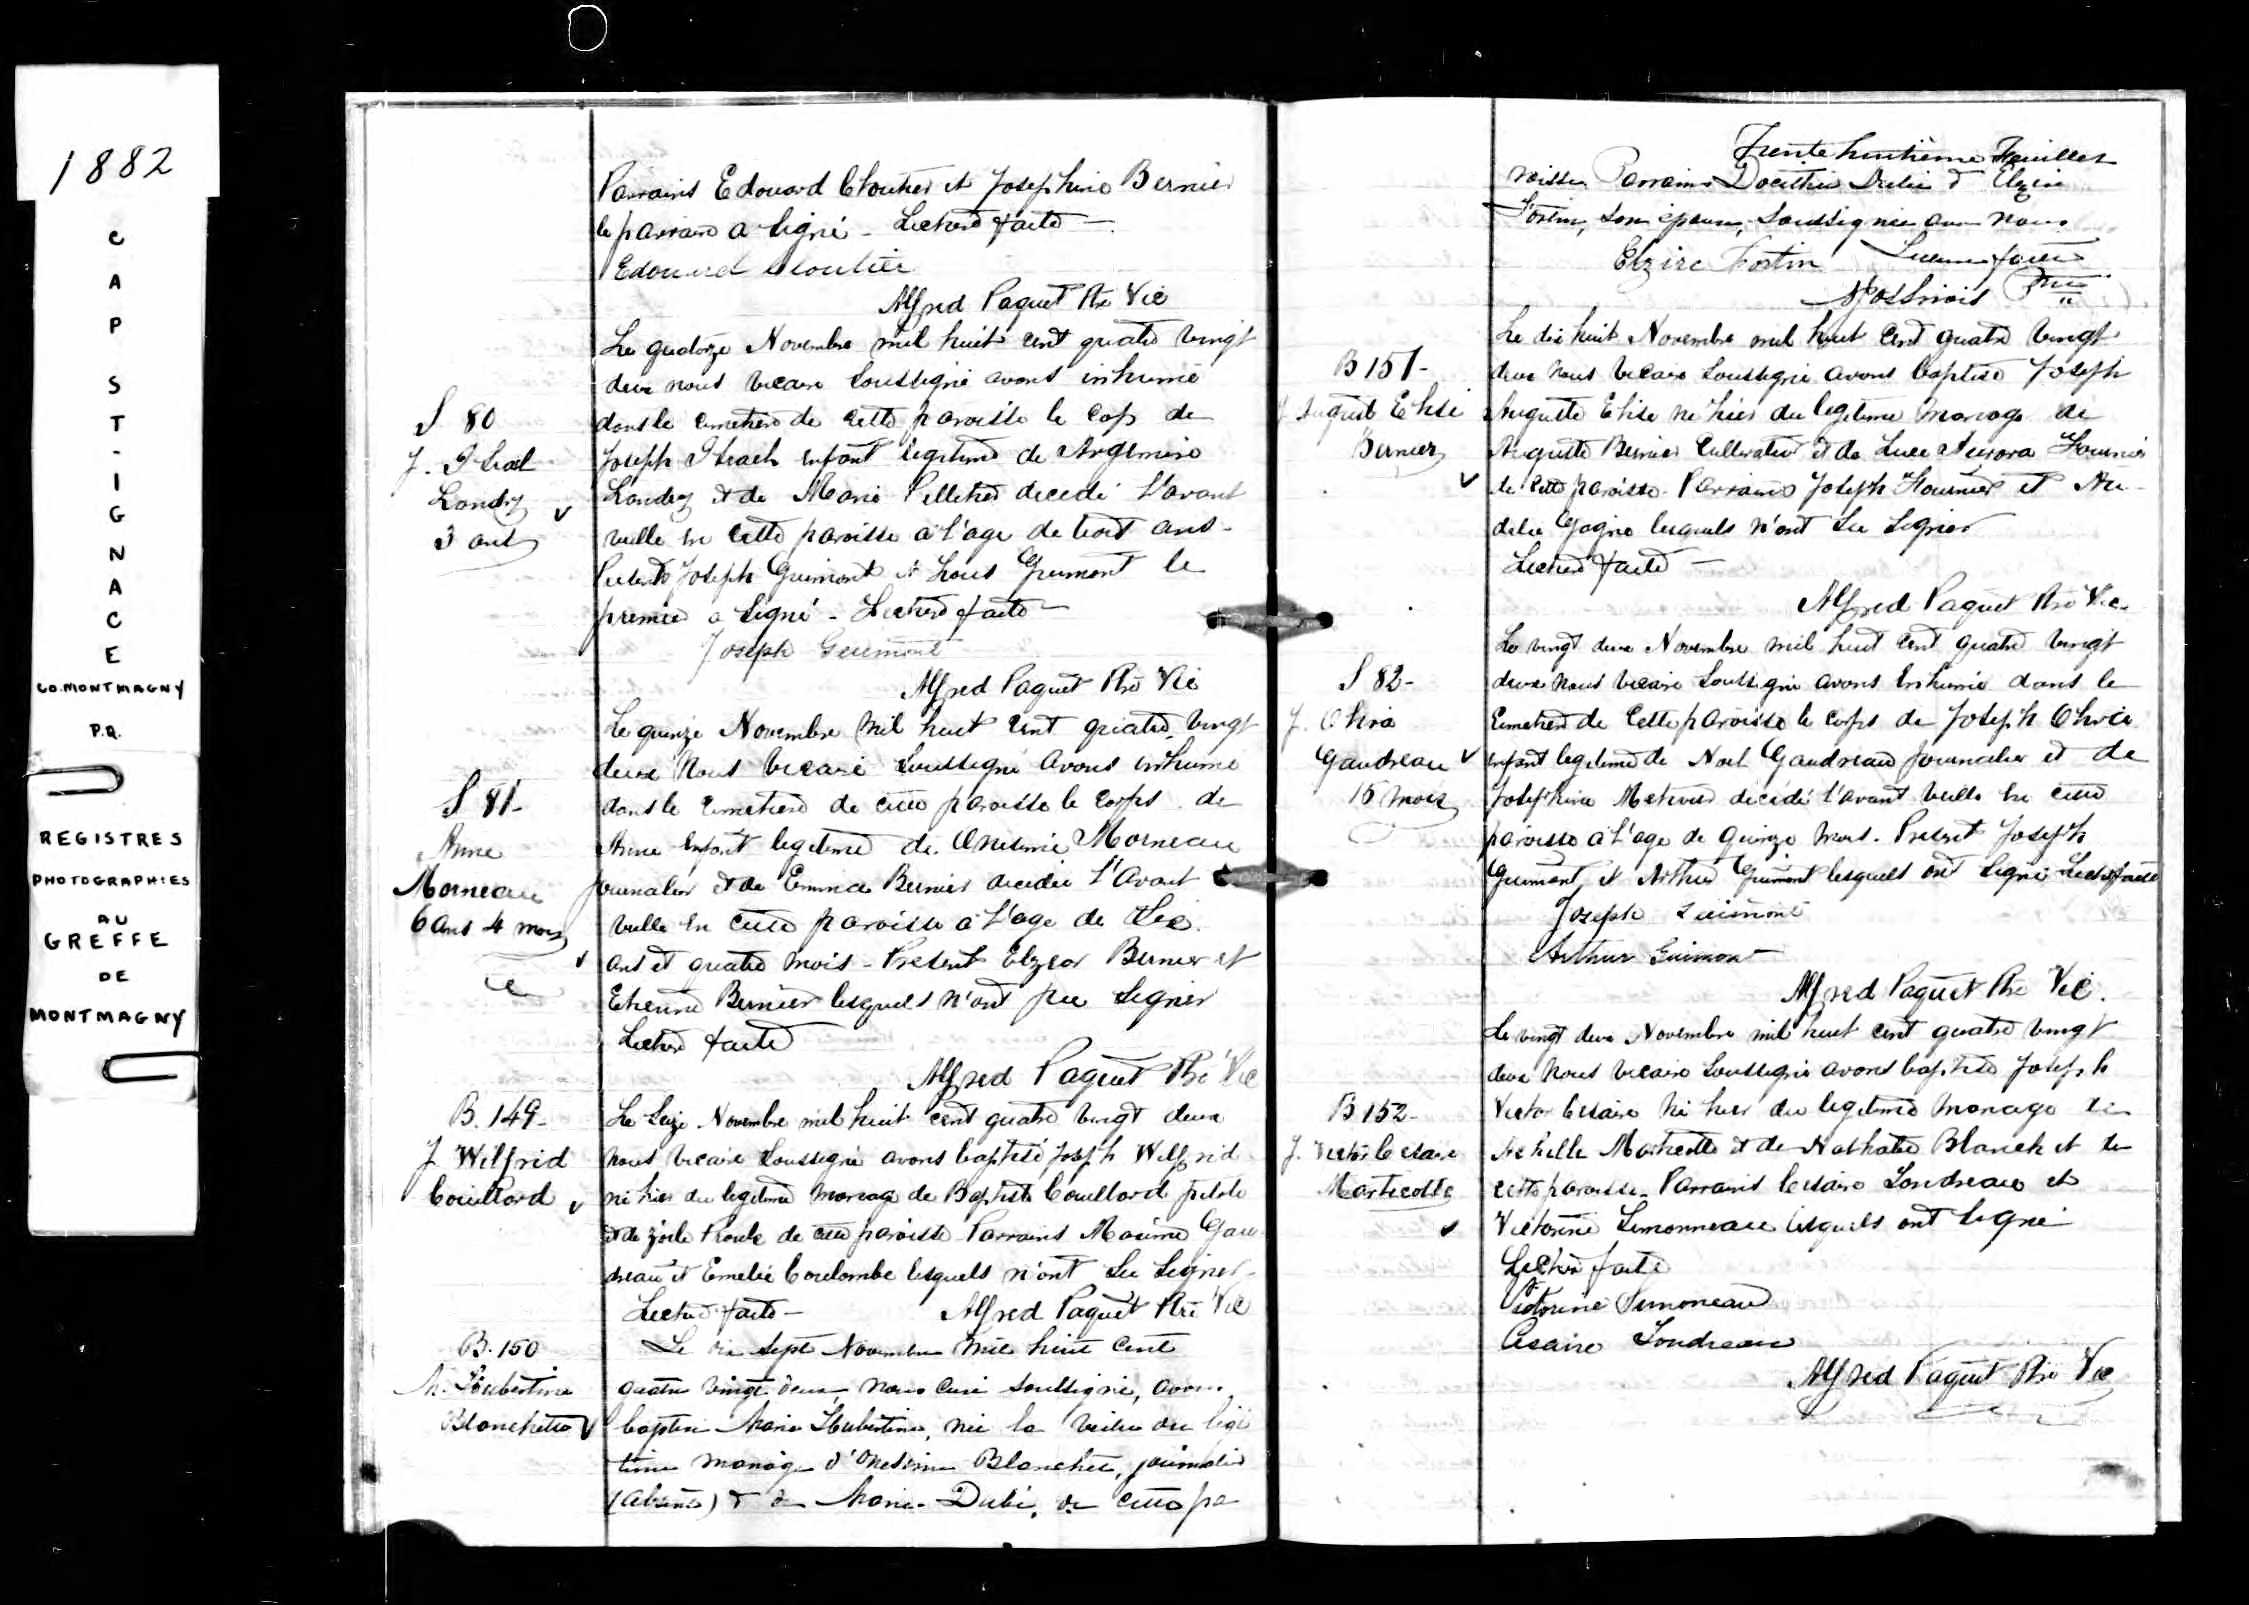 1882
CAP ST-IGNACE
CO. MONTMAGNY
P.Q.
REGISTRES
PHOTOGRAPHIES
AU
GREFFE
DE
MONTMAGNY
Parrains Edouard Cloutier et Josephine Bernier
le parrain a signé - Lecture faite -
Edouard Cloutier
Alfred Paquet Ptre Vic
Le quatorze Novembre mil huit cent quatre vingt
deux nous vicaire soussigné avons inhumé
S 80
J. Israel
Landry
3 ans
dans le cimetiere de cette paroisse le cops de
Joseph Israel enfant legitime de Onesime
Landry et de Marie Pelletier decedé l'avant
veille en cette paroisse à l'age de trois ans -
Presents Joseph Guimont et Louis Guimont le
premier a signé - Lecture faite -
Joseph Guimont
Alfred Paquet Ptre Vic
Le quinze Novembre mil huit cent quatre vingt
deux Nous vicaire soussigné avons inhumé
S 81-
Anne
Morneau
6 ans 4 mois
dans le cimetiere de cette paroisse le corps de
Anne enfant legitime de Onesime Morneau
journalier et de Emma Bernier decedée l'avant
veille en cette paroisse à l'age de six
ans et quatre mois - Present Elzear Bernier et
Etienne Bernier lesquels n'ont pu signer
Lecture faite
Alfred Paquet Ptre Vic
B. 149-
J. Wilfrid
Couillard
Le Seize Novembre mil huit cent quatre vingt deux
nous vicaire soussigné avons baptisé Joseph Wilfrid
né hier du legitime mariage de Baptiste Couillard pilote
et de Zoïle Proulx de cette paroisse Parrains Maxime Gau
dreau et Emelie Coulombe lesquels n'ont su signer -
Lecture faite - Alfred Paquet Ptre Vic
B. 150
M. Hubertine
Blanchette
Le dix sept Novembre mil huit cent
quatre vingt deux, nous curé soussigné, avons
baptisé Marie Hubertine, née la veille du légi
time mariage d'Onesime Blanchet, journalier
(absent) & de Marie Dubé, de cette pa
Trente huitième Feuillet
roisse Parrains Docithée Dubé & Elzire
Fortin, son épouse, soussignée avec nous
Elzire Fortin Lecture faite
Ptre
B 151-
J. Auguste Elisé
Bernier
Le dix huit Novembre mil huit cent quatre vingt
deux nous vicaire soussigné avons baptisé Joseph
Auguste Elise né hier du legitime mariage de
Auguste Bernier Cultivateur et de Luce Aurora Fournier
de cette paroisse - Parrains Joseph Fournier et Au-
delie Gagné lesquels n'ont su signer
Lecture faite -
Alfred Paquet Ptre Vic.
S 82-
J. Oliva
Gaudreau
15 mois
Le vingt deux Novembre mil huit cent quatre vingt
deux nous vicaire soussigné avons inhumé dans le
Cimetiere de cette paroisse le corps de Joseph Oliva
enfant legitime de Noel Gaudreau journalier et de
Josephine Metivier decedé l'avant veille en cette
paroisse à l'age de quinze mois. Present Joseph
Guimont et Arthur Guimont lesquels ont signé Lecture faite
Joseph Guimont
Arthur Guimont
Alfred Paquet Ptre Vic.
B 152-
J. Victor Cesaire
Marticotte
Le vingt deux Novembre mil huit cent quatre vingt
deux nous vicaire soussigné avons baptisé Joseph
Victor Cesaire né hier du legitime mariage de
Achille Marticotte et de Nathalie Blanchet de
cette paroisse - Parrains Cesaire Gendreau et
Victorine Simonneau lesquels ont signé
Lecture faite
Victorine Simoneau
Cesaire Gendreau
Alfred Paquet Ptre Vic